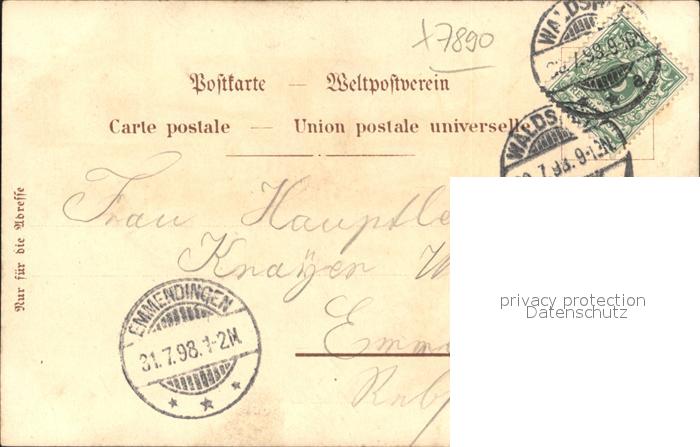 x7890
Postkarte — Weltpostverein
Carte postale — Union postale universelle
Nur für die Adresse
Frau Hauptle
Knayer W
Emme
EMMENDINGEN
31.7.98.1-2N.
privacy protection
Datenschutz